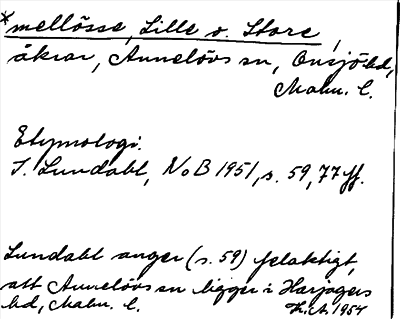 *mellösse, Lille o. Store,
åkrar, Annelövs sn, Onsjö hd,
Malm. l.
Etymologi.
I. Lundahl, NoB 1951, s. 59, 77 ff.
Lundahl anger (s. 59) felaktigt,
att Annelövs sn ligger i Harjagers
hd, Malm. l.
H.A. 1954